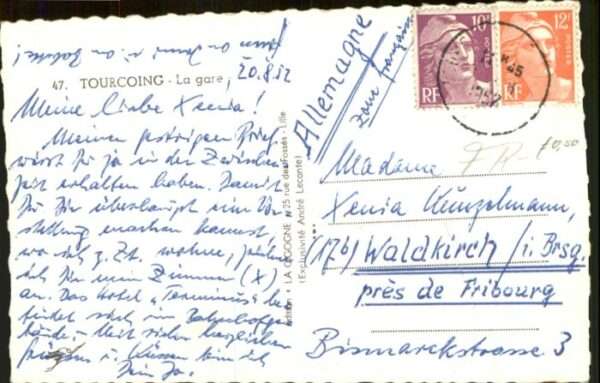 47. TOURCOING - La gare
20.8.52
Meine liebe Xenia!
Meinen gestrigen Brief
wirst Du ja in der Zwischen-
zeit erhalten haben. Damit
Du Dir überhaupt eine Vor-
stellung machen kannst
wo ich z. Zt. wohne,
ich Dir mein Zimmer (X)
an. Das Hotel "Terminus" be-
findet sich im Bahnhofge-
bäude. - Mit vielen herzlichen
Grüssen u. Küssen bin ich
Dein
Edition : LA CIGOGNE 25 rue des Fossés - Lille
(Exclusivité André Leconte)
Allemagne
zone française
10F
POSTES
RF
12F
POSTES
RF
1952
Madame
Xenia Kunzelmann,
(17b) Waldkirch/i. Brsg.
près de Fribourg
Bismarckstrasse 3